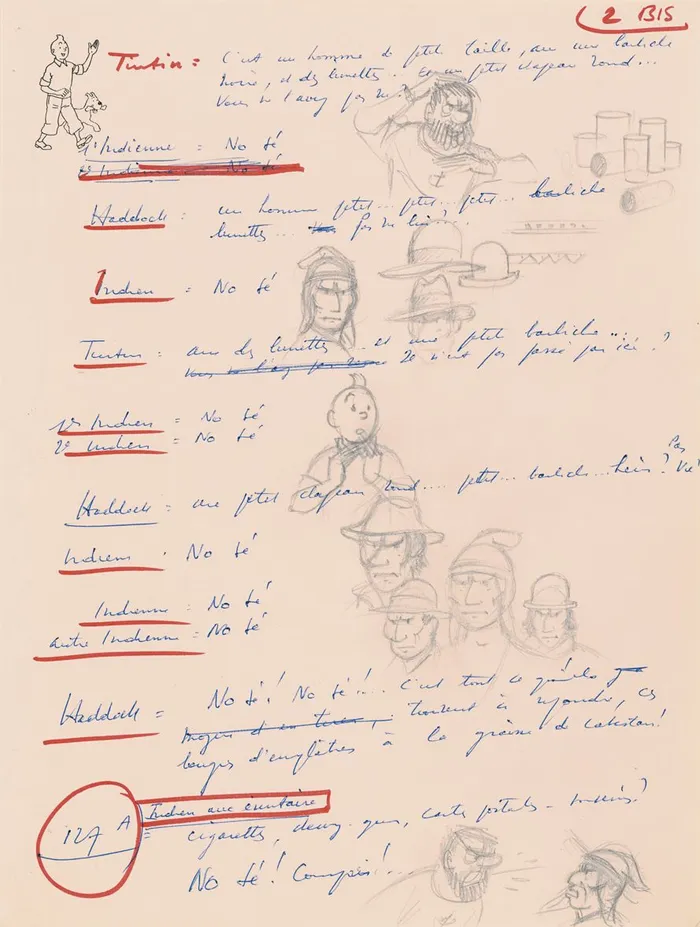 2 BIS
Tintin = C'est un homme de petite taille, avec une barbiche
noire, et des lunettes... Et un petit chapeau rond...
Vous ne l'avez pas vu?
1e Indienne = No sé
2e Indienne = No sé
Haddock: un homme petit... petit... petit... barbiche
lunettes... pas vu
Indien = No sé
Tintin: avec des lunettes et une petite barbiche...
Vous ne l'avez pas vu Il n'est pas passé par ici?
1er Indien = No sé
2e Indien = No sé
Pas
Haddock = avec petit chapeau rond.... petit... barbiche... hein? Vu
Indiens: No sé
Indienne = No sé
autre Indienne = No sé
Haddock = No sé! No sé!... C'est tout ce qu'ils
trouvent à répondre, ces
bougres d'emplâtres à la graisse de cabestan!
127 A Indien avec éventaire
= cigarettes, chewing-gum, cartes postales
No sé! Compris!..